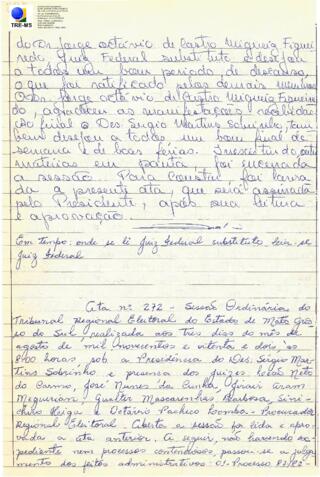 TRE-MS
do Dr. Jorge Octávio de Castro Migueis Figuei
redo, Juiz Federal substituto e desejam
a todos um bom período de descanso,
o que foi ratificado pelos demais membros.
O Dr. Jorge Octávio de Castro Migueis Figueiredo
do, agradeceu as manifestações recebidas
O Des. Sérgio Martins Sobrinho, tam
bém desejou a todos um bom final de
semana e de boas férias. Inexistindo outras
matérias em pauta, foi encerrada
a sessão. Para Constar, foi lavra
da a presente ata, que será assinada
pelo Presidente, após sua leitura
e aprovação.
Em tempo: onde se lê Juiz Federal substituto, leia-se
Juiz Federal
Ata nº 272 - Sessão Ordinárias do
Tribunal Regional Eleitoral do Estado de Mato Gros
so do Sul, realizada aos três dias do mês de
agosto de mil novecentos e oitenta e dois, às
horas, sob a Presidência do Des. Sérgio Mar
tins Sobrinho e presença dos juízes: Leão Neto
do Carmo, José Nunes da Cunha, Jirair Aram
Meguerian, Gualter Mascarenhas Barbosa, Sini
chiro Heiga e Octávio Pacheco Lomba - Procurador
Regional Eleitoral. Aberta a sessão foi lida e apro-
vada a ata anterior. A seguir, não havendo ex-
pediente nem processos contenciosos, passou-se a julga-
mento dos feitos administrativos: 01. Processo